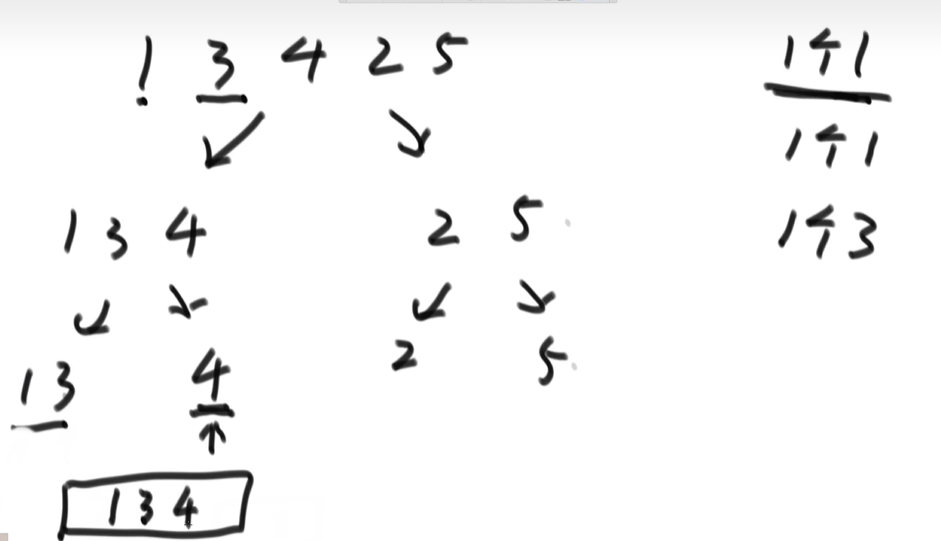 1 3 4 2 5
1 3 4
2 5
1 3
4
2
5
1 3 4
1个1
1个1
1个3